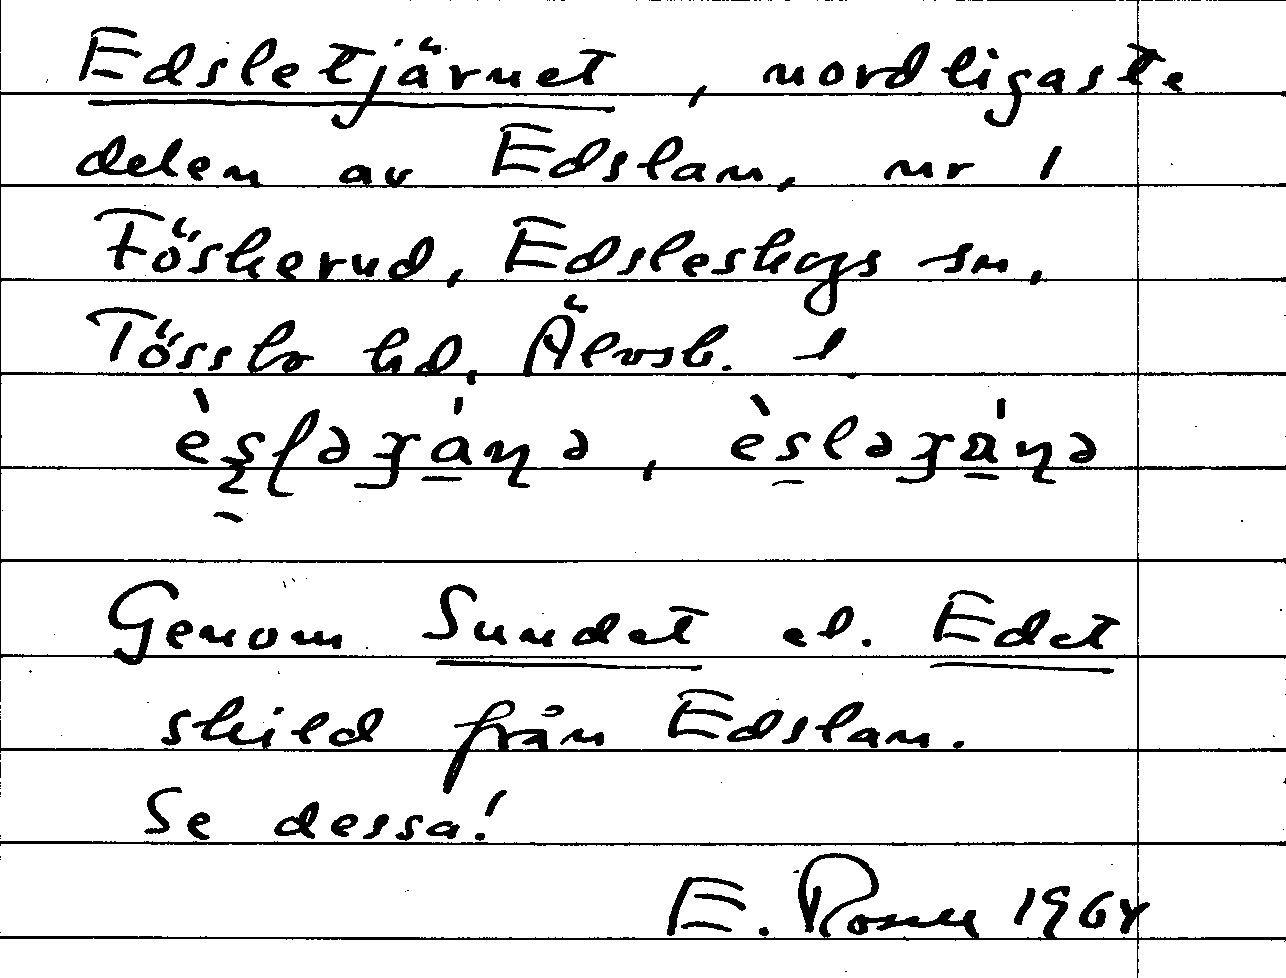 Edsletjärnet, nordligaste
delen av Edslan, nr 1
Föskerud, Edsleskogs sn,
Tössbo hd, Älvsb. l.
Genom Sundet el. Edet
skild från Edslan.
Se dessa!
E. Rosell 1964